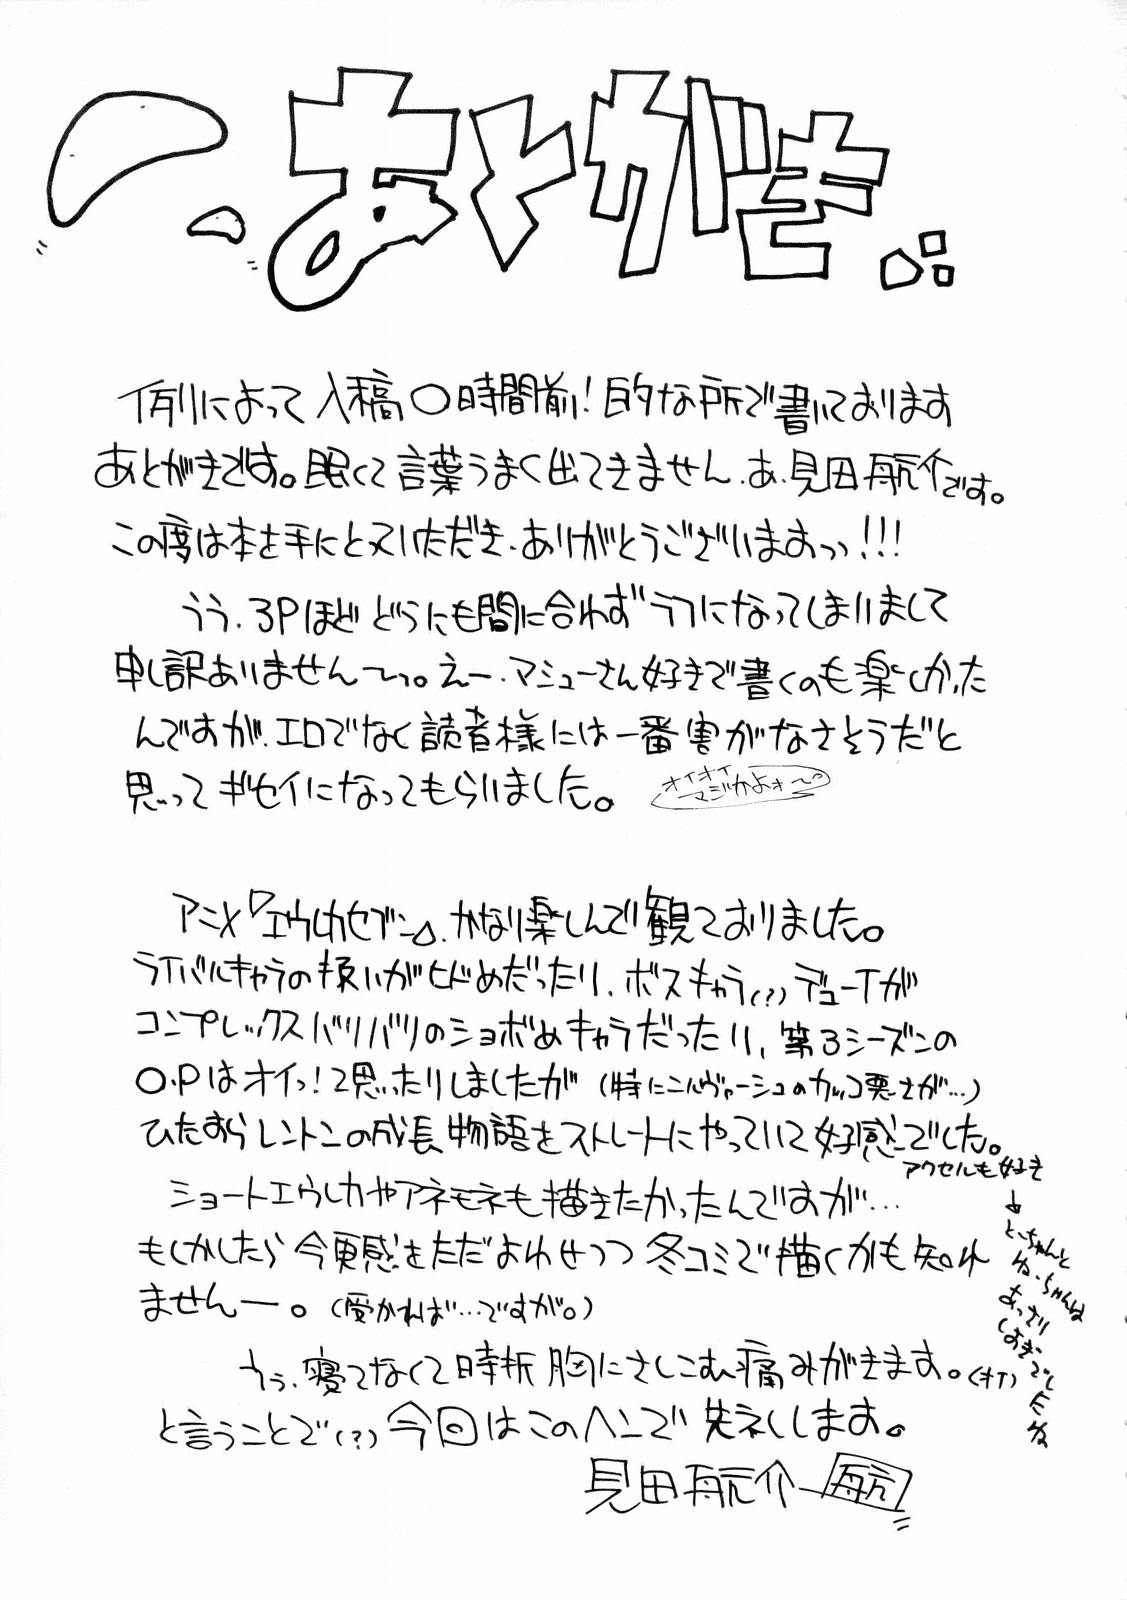 あとがき
例によって入稿〇時間前!的な所で書いております
あとがきです。眠くて言葉うまく出てきません.あ.見田航介です。
この度は本を手にとっていただき.ありがとうございますっっ!!!
うう.3Pほどどうにも間に合わずラフになってしまいまして
申し訳ありません〜っ。えー.マシューさん好きで書くのも楽しかった
んですが.エロでなく読者様には一番害がなさそうだと
思ってギセイになってもらいました。
オイオイ
マジかよォ〜。
アニメ『エウレカセブン』.かなり楽しんで観ておりました。
ライバルキャラの扱いがヒドめだったり、ボスキャラ(?)デューイが
コンプレックスバリバリのショボめキャラだったり、第3シーズンの
O.Pはオイっ!と思ったりしましたが(特にニルヴァーシュのカッコ悪さが…)
ひたすらレントンの成長物語をストレートにやっていて好感でした。
アクセルも好き
↓
とーちゃんと
ねーちゃんは
あっさり
しすぎ
でしたね
ショートエウレカやアネモネも描きたかったんですが…
もしかしたら今更感をただよわせつつ冬コミで描くかも知れ
ませんー。(受かれば…ですが。)
うぅ.寝てなくて時折胸にさしこむ痛みがきます。(オイ)
と言うことで(?)今回はこのヘンで失礼します。
見田航介 航